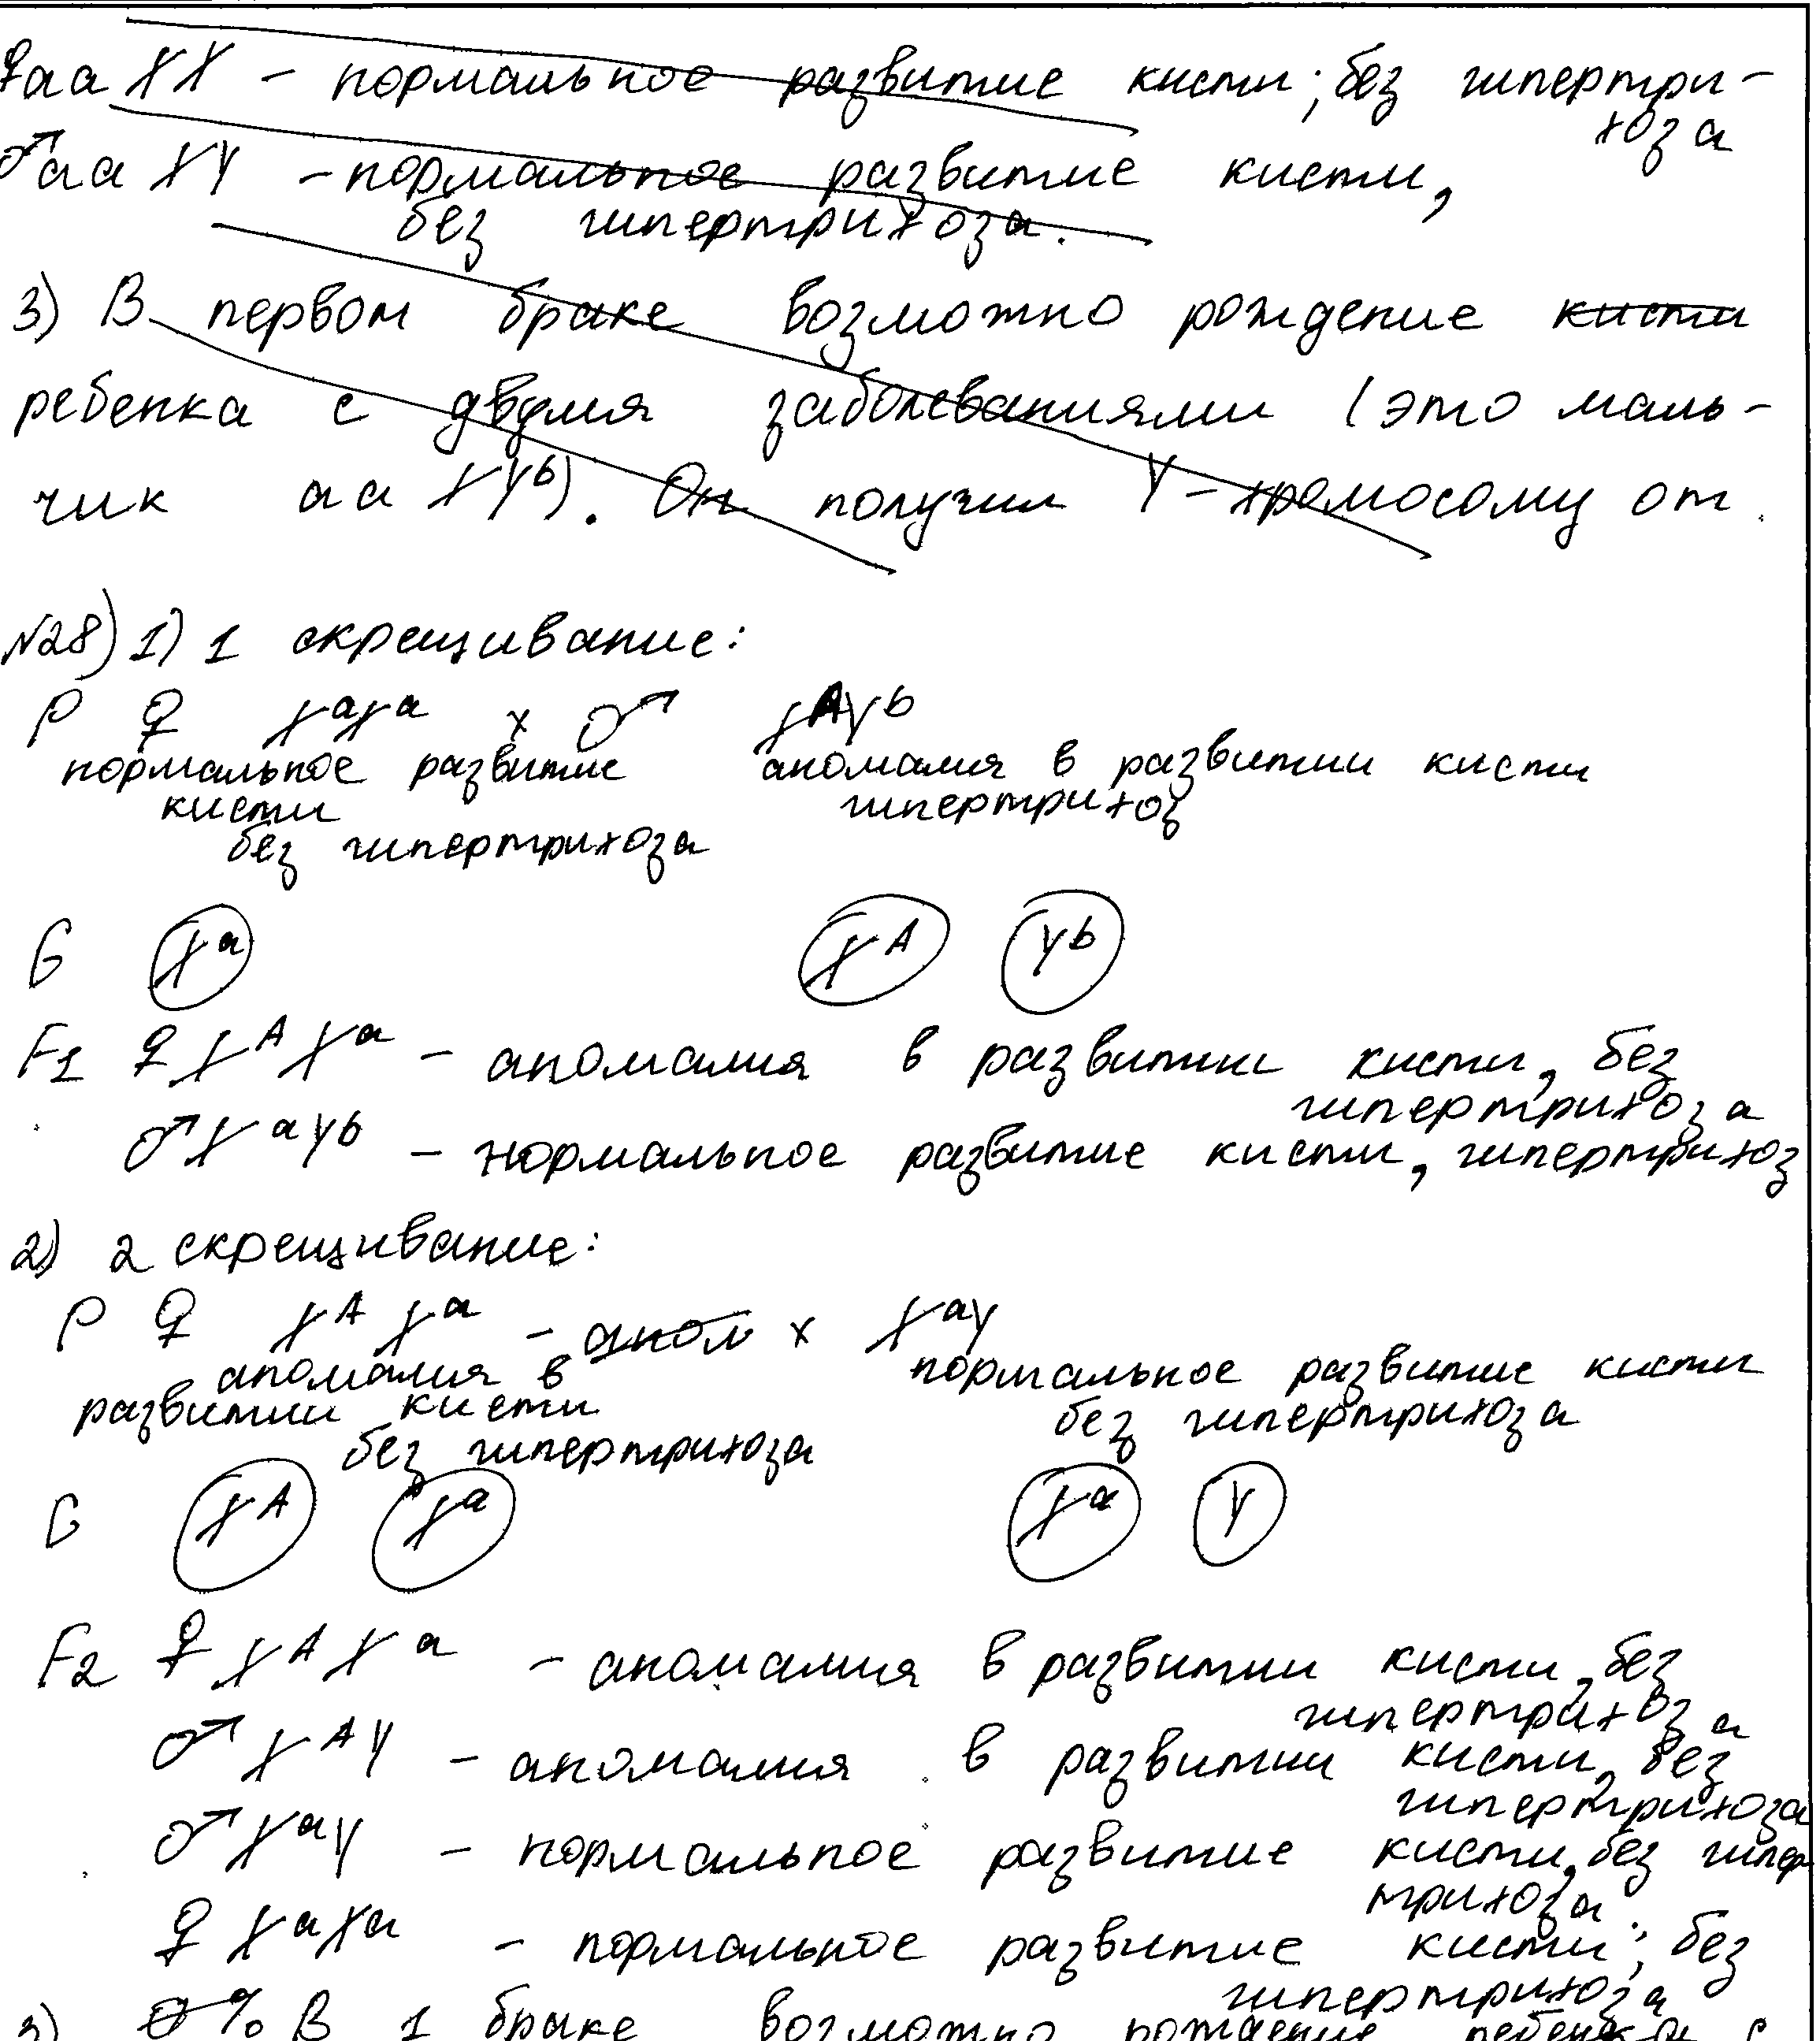 ♀aa XX – нормальное развитие кисти; без гипертри-
хоза
♂aa XY – нормальное развитие кисти,
без гипертрихоза.
3) В первом браке возможно рождение кисти
ребенка с двумя заболеваниями (это маль-
чик aa XYᵇ). Он получил Y-хромосому от
№28) 1) 1 скрещивание:
P ♀ XᵃXᵃ x ♂ XᴬYᵇ
нормальное развитие аномалия в развитии кисти
кисти гипертрихоз
без гипертрихоза
G Xᵃ Xᴬ Yᵇ
F1 ♀ XᴬXᵃ – аномалия в развитии кисти, без
гипертрихоза
♂XᵃYᵇ – нормальное развитие кисти, гипертрихоз
2) 2 скрещивание:
P ♀ XᴬXᵃ – аном x XᵃY
аномалия в нормальное развитие кисти
развитии кисти без гипертрихоза
без гипертрихоза
G Xᴬ Xᵃ Xᵃ Y
F2 ♀ XᴬXᵃ – аномалия в развитии кисти, без
гипертрихоза
♂ XᴬY – аномалия в развитии кисти, без
гипертрихоза
♂ XᵃY – нормальное развитие кисти, без гипер
трихоза
♀ XᵃXᵃ – нормальное развитие кисти; без
гипертрихоза
3) % В 1 браке возможно рождение ребенка с